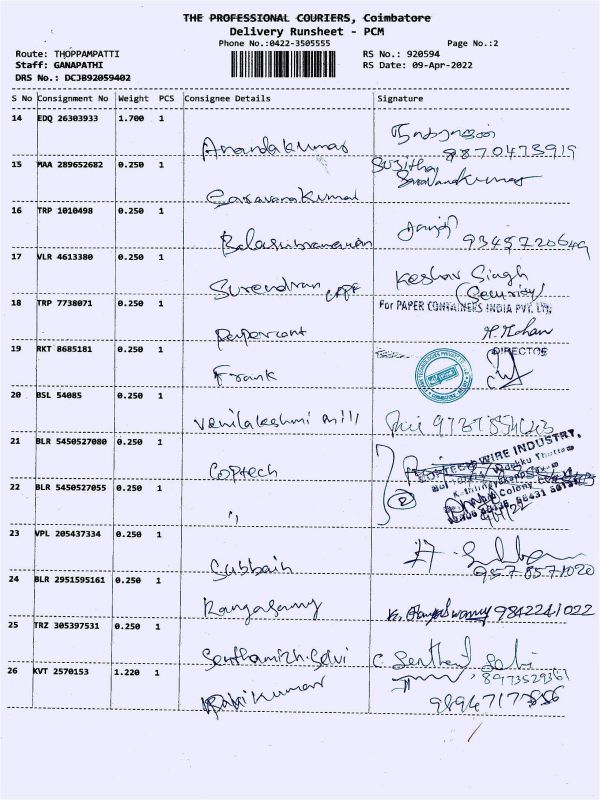 THE PROFESSIONAL COURIERS, Coimbatore
Delivery Runsheet - PCM
Phone No.:0422-3505555 Page No.:2
Route: THOPPAMPATTI RS No.: 920594
Staff: GANAPATHI RS Date: 09-Apr-2022
DRS No.: DCJB92059402
S No Consignment No Weight PCS Consignee Details Signature
14 EDQ 26303933 1.700 1
Anandakumar 8870473919
15 MAA 289652682 0.250 1
Saravanakumar Saravanakumar
16 TRP 1010498 0.250 1
Balasubramanian 9345720649
17 VLR 4613380 0.250 1 Keshav Singh
Surendran (Security)
18 TRP 7738071 0.250 1 For PAPER CONTAINERS INDIA PVT. LTD
Papercont
19 RKT 8685181 0.250 1 DIRECTOR
Frank
20 BSL 54085 0.250 1
Venilakshmi mill
21 BLR 5450527080 0.250 1 WIRE INDUSTRY,
Coptech
22 BLR 5450527055 0.250 1 Colony
"
23 VPL 205437334 0.250 1
Subbain 9578571020
24 BLR 2951595161 0.250 1
Rangasamy 9842241022
25 TRZ 305397531 0.250 1
Senthamizh.Selvi C Senthamil Selvi
26 KVT 2570153 1.220 1 8973529361
Rabikumar